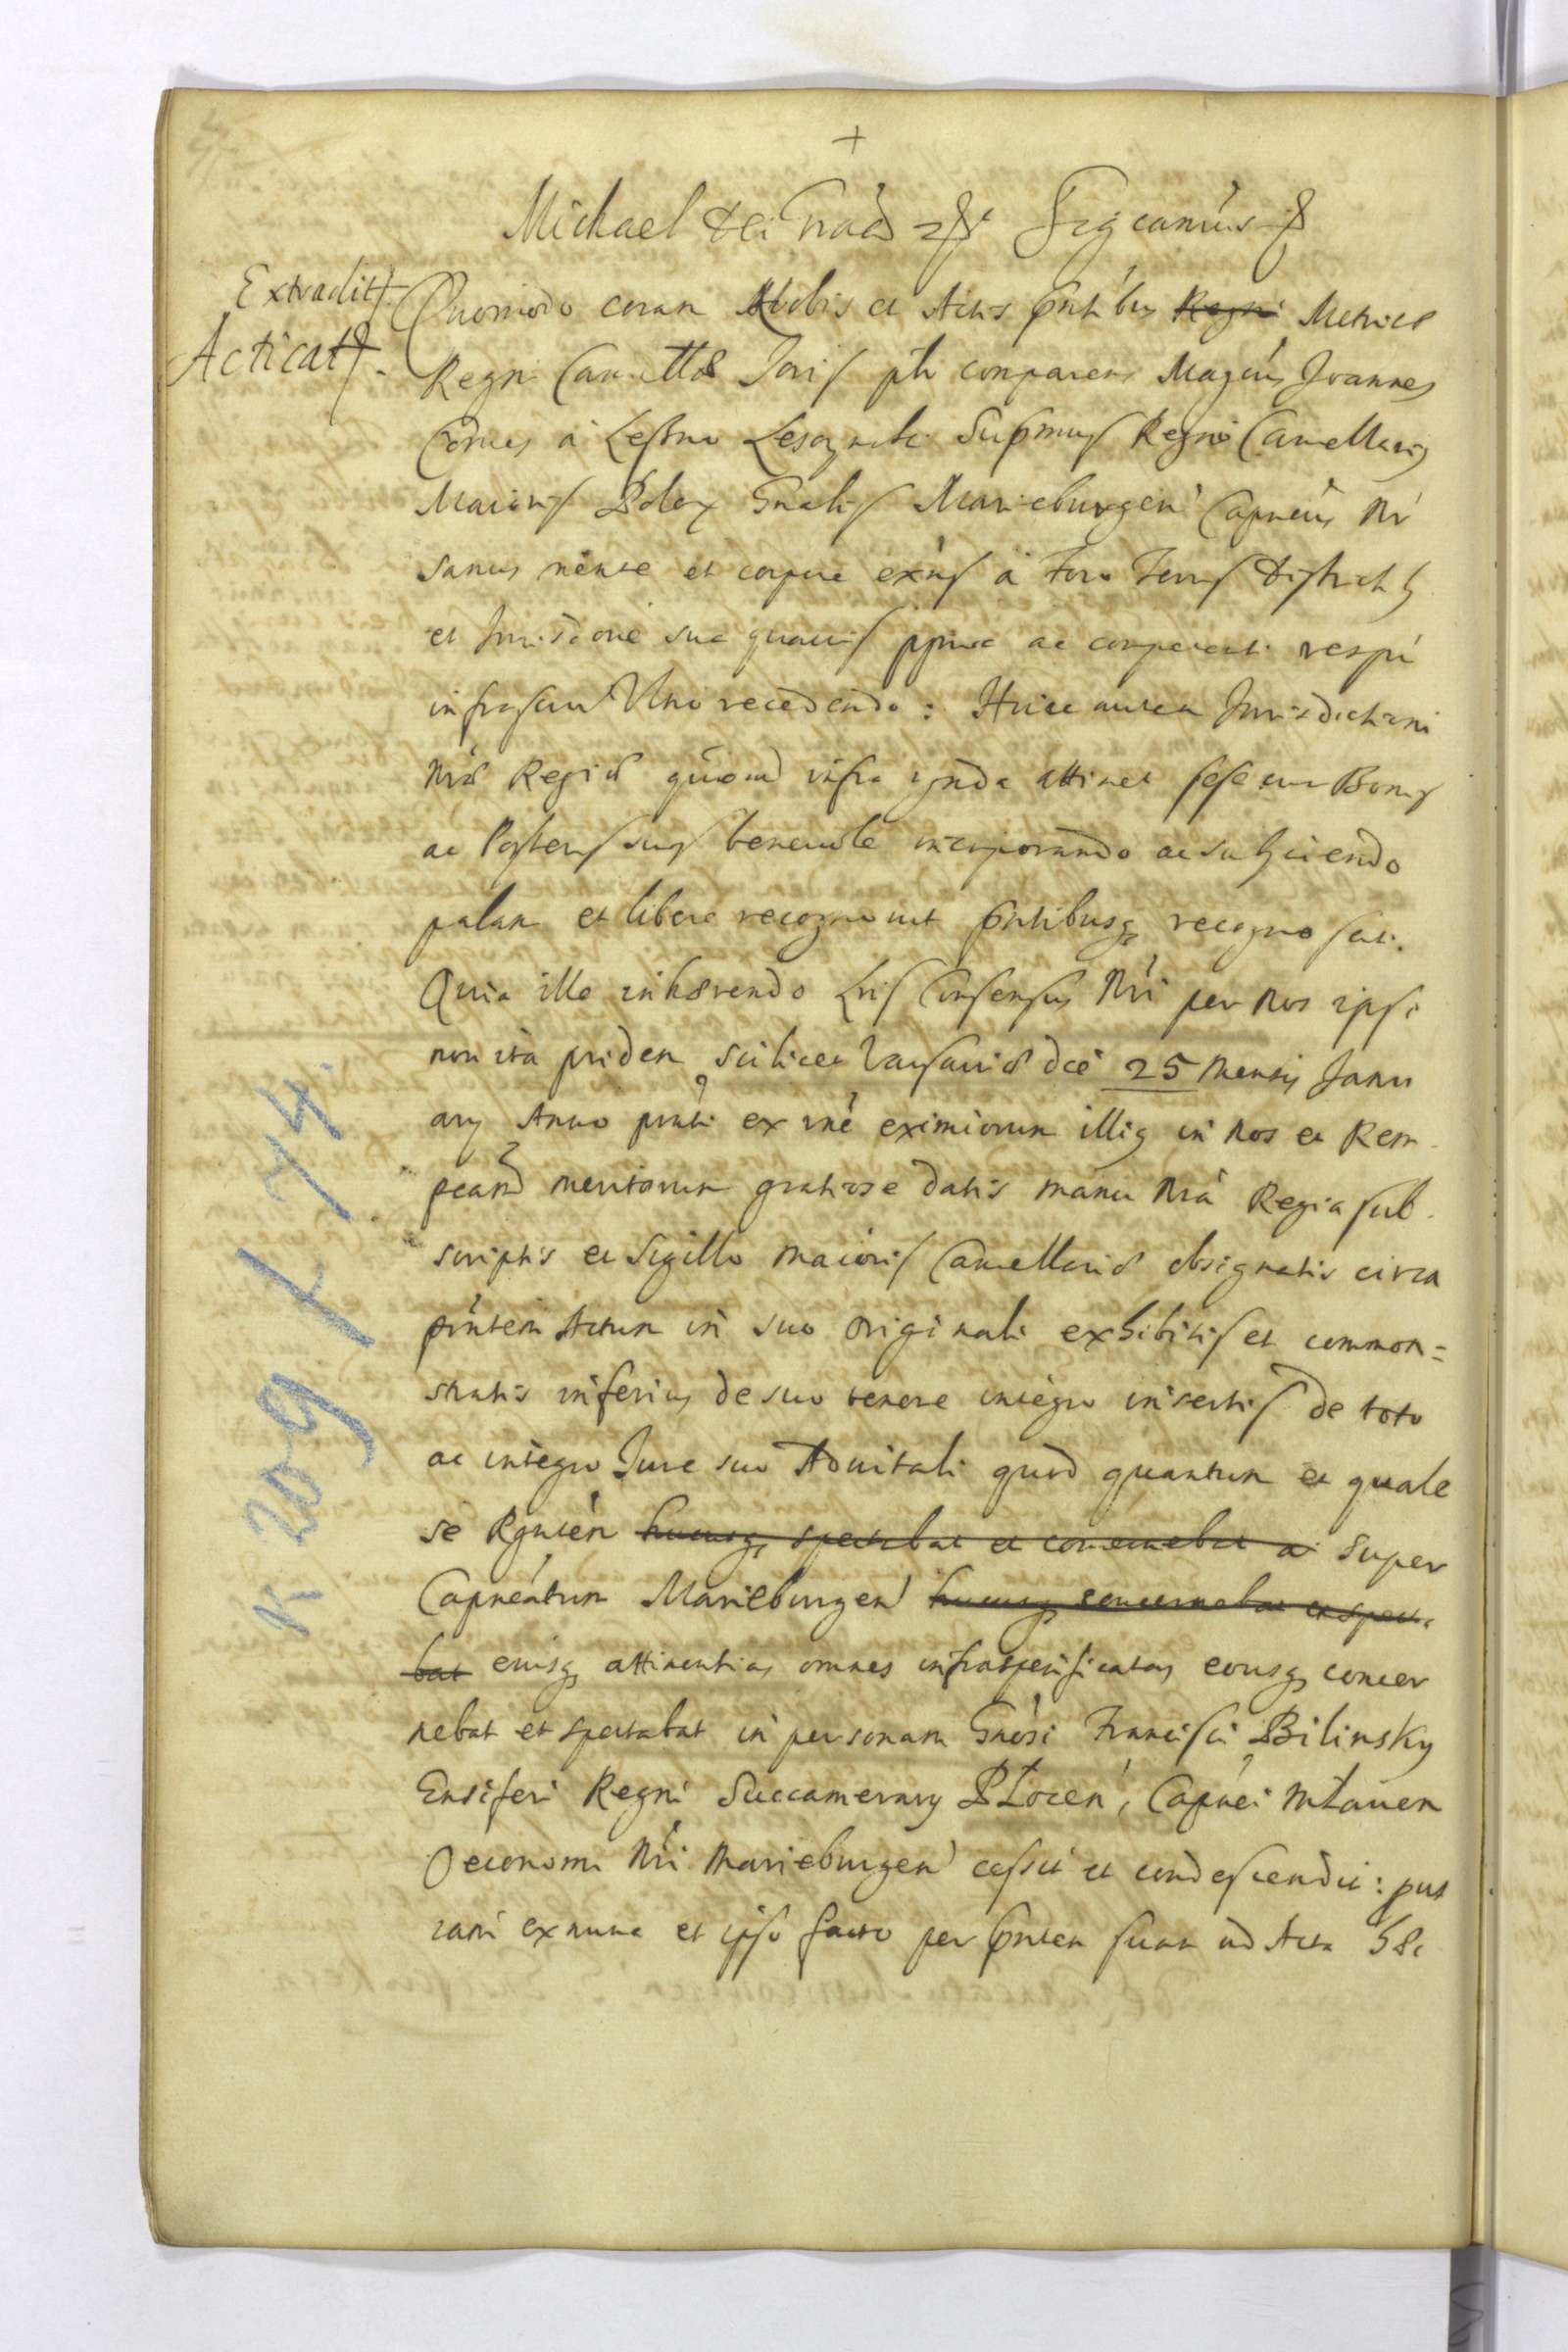 +
Michael Dei Gra& Significamus
Extradit.
Acticat.
Quomodo coram Nobis et Actis pntibus Regni Metrices
Regni Cancellae Maioris psltr comparens Magcus Joannes
Comes à Leszno Leszczynski Supmus Regni Cancellarius
Maioris Polo Gnalis Marieburgen Capneus Nr
sanus mente et corpore exns à Foro Terris Districtu
et Jurisdõne sua quavis ppria ac competenti respu
infrascrit Vlno recedendo: Huic autem Jurisdictioni
Nrae Regiae quoad infra ynda attinet sese cum Bonis
ac Posteris suis benevole incorporando ac subyciendo
palam et libere recognovit pntibusq recognoscit.
Quia ille inhaerendo Lris Consensus Nri per Nos ipsi
non ita pridem scilicet Varsaviae die 25 Mensis Janu
ary Anno pnti ex rne eximiorum illius in Nos et Rem
pcam meritorum gratiose datis manu Nra Regia sub
scriptis et Sigillo maioris Cancellariae obsignatis circa
pntem Actum in suo originali exhibitis et common=
stratis inferius de suo tenore integro insertis de toto
ac integro Jure suo Advitali quod quantum et quale
se Rgnten hucusq spectabat et concernebat a super
Capneatum Marieburgen hucusq concernebat et specta
bat eiusq attinentias omnes infraspecificatas eousq concer
nebat et spectabat in personam Gnosi Francisci Bilinsky
Ensiferi Regni Succamerary PŁocen, Capnei MŁaven
Oeconomi Nri Marieburgen cessit et condescendit: put
iam ex nunc et ipso facto per pntem suam ad Acta
N 209 f 74.